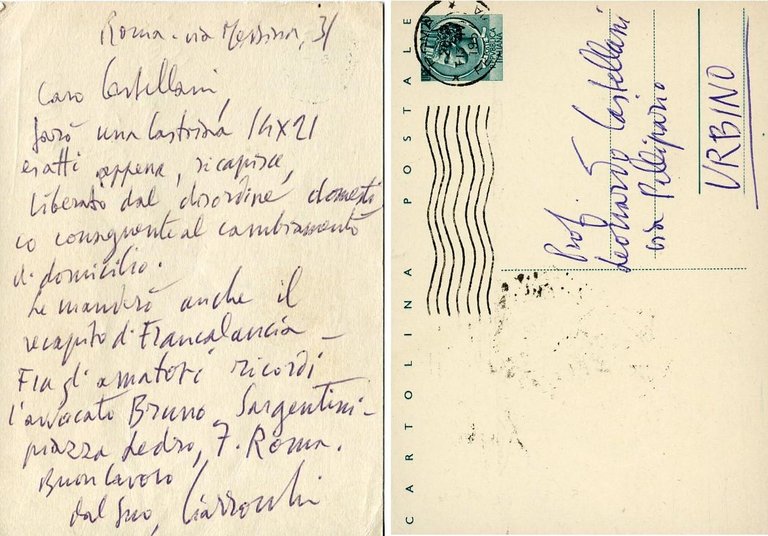 Roma - via Messina, 31
Caro Castellani,
farò una lastrina 14x21
esatti appena, si capisce,
liberato dal disordine domesti
co conseguente al cambiamento
di domicilio.
Le manderò anche il
recapito di Francalancia -
Fra gli amatori ricordi
l'avvocato Bruno Sargentini -
piazza Ledro, 7. Roma.
Buon lavoro
dal Suo, Ciarrocchi
CARTOLINA POSTALE
Prof.
Leonardo Castellani
via Pellipario
URBINO